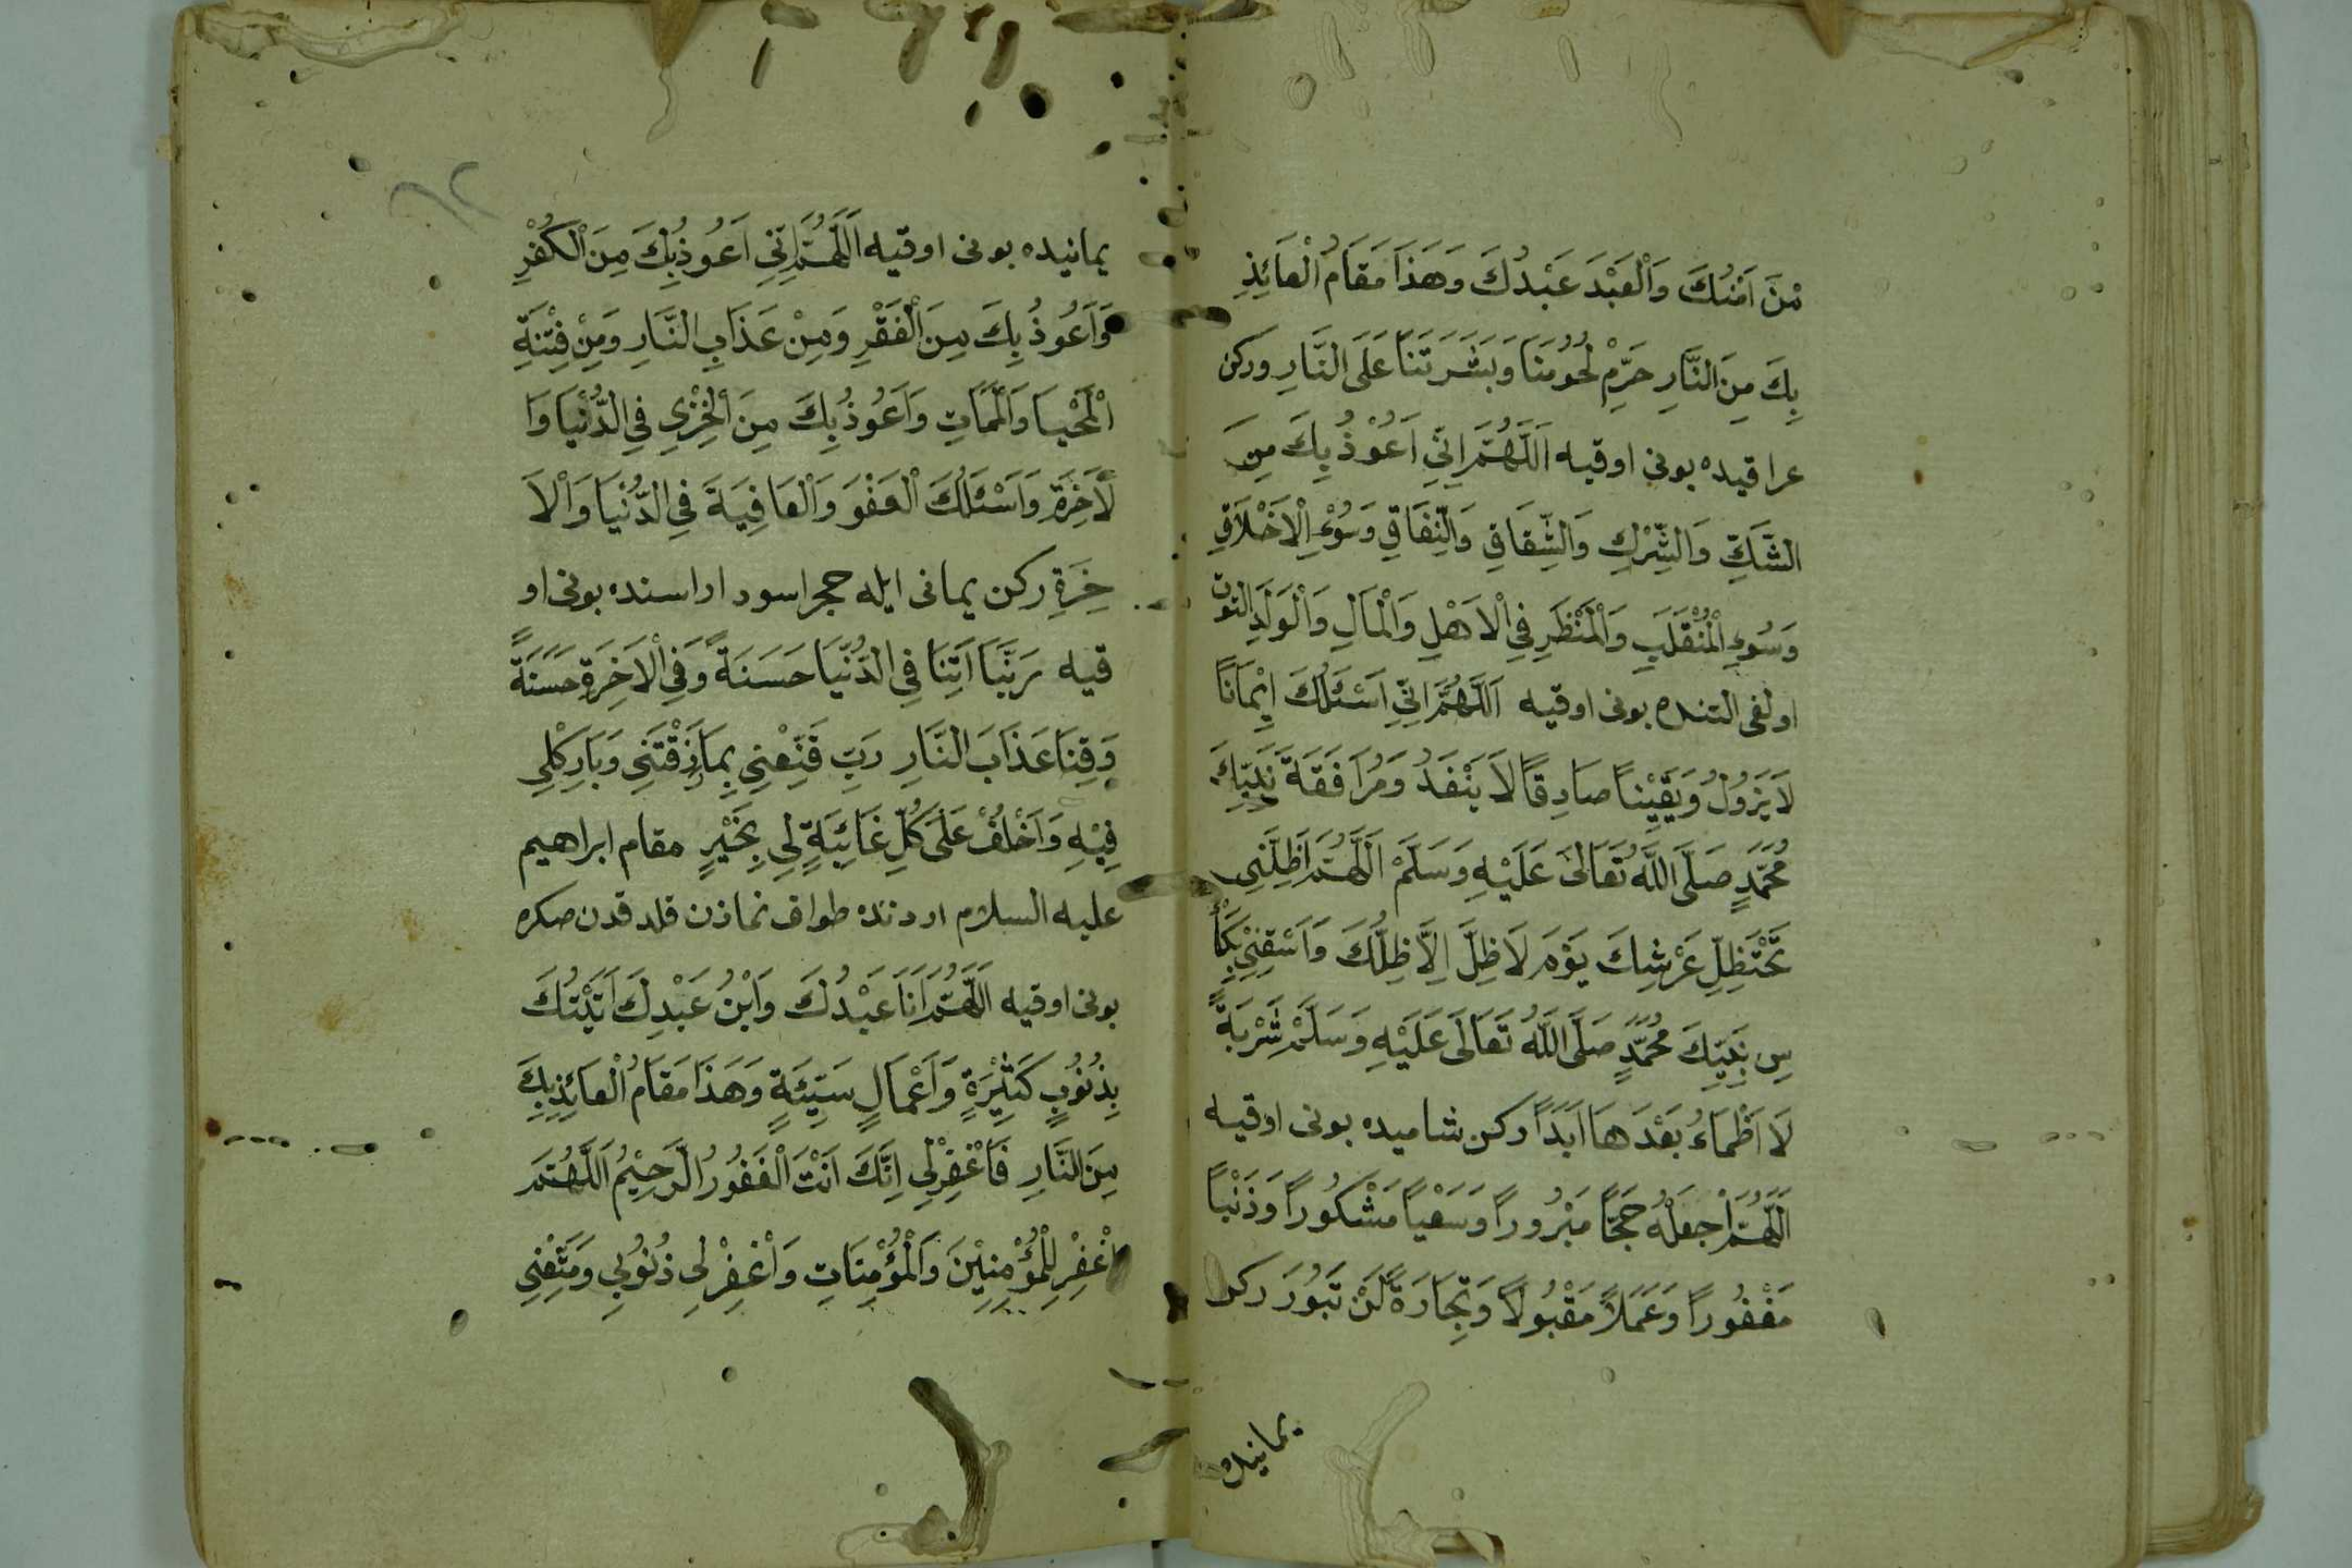 مْنَ اَمْنُكَ وَالْعَبْدَ عَبْدُكَ وَهَذَا مَقَامُ الْعَائِذِ
بِكَ مِنَ النَّارِ حَرِّمْ لُحُومَنَا وَبَشَرَتَنَا عَلَى النَّارِ وركن
عراقيده بونى اوقيه اَللَّهُمَّ اِنِّي اَعُوْذُ بِكَ مِنَ
الشَّكِّ وَالشِّرْكِ وَالشِّقَاقِ وَالنِّفَاقِ وَسُوْءِ الْاَخْلَاقِ
وَسُوءِ الْمُنْقَلَبِ وَالْمَنْظَرِ فِي الْاَهْلِ وَالْمَالِ وَالْوَلَدِ التون
اولغى التنده بونى اوقيه اَللَّهُمَّ اِنِّي اَسْئَلُكَ اِيْمَانًا
لَا يَزُولُ وَيَقِيْنًا صَادِقًا لَا يَنْفَدُ وَمُرَافَقَةَ نَبِيِّكَ
مُحَمَّدٍ صَلَّى اللَّهُ تَعَالَى عَلَيْهِ وَسَلَّمْ اَللَّهُمَّ اَظِلَّنِي
تَحْتَ ظِلِّ عَرْشِكَ يَوْمَ لَا ظِلَّ اِلَّا ظِلُّكَ وَاَسْقِنِيْ بِكَأْ
سِ نَبِيِّكَ مُحَمَّدٍ صَلَّى اللَّهُ تَعَالَى عَلَيْهِ وَسَلَّمْ شَرْبَةً
لَا اَظْمَاءُ بَعْدَهَا اَبَدًا ركن شاميده بونى اوقيه
اَللَّهُمَّ اجْعَلْهُ حَجًّا مَبْرُورًا وَسَعْيًا مَشْكُورًا وَذَنْبًا
مَغْفُورًا وَعَمَلًا مَقْبُولًا وَتِجَارَةً لَنْ تَبُورَ ركن
يمانيده
٦٢
يمانيده بونى اوقيه اَللَّهُمَّ اِنِّي اَعُوذُ بِكَ مِنَ الْكُفْرِ
وَاَعُوذُ بِكَ مِنَ الْفَقْرِ وَمِنْ عَذَابِ النَّارِ وَمِنْ فِتْنَةِ
الْمَحْيَا وَالْمَمَاتِ وَاَعُوذُ بِكَ مِنَ الْخِزْيِ فِي الدُّنْيَا وَا
لْاَخِرَةِ وَاَسْئَلُكَ الْعَفْوَ وَالْعَافِيَةَ فِي الدُّنْيَا وَالْاَ
خِرَةِ ركن يمانى ايله حجر اسود اراسنده بونى او
قيه رَبَّنَا اَتِنَا فِي الدُّنْيَا حَسَنَةً وَفِي الْاَخِرَةِ حَسَنَةً
وَقِنَا عَذَابَ النَّارِ رَبِّ قَنِّعْنِي بِمَا رَزَقْتَنِي وَبَارِكْ لِي
فِيْهِ وَاَخْلُفْ عَلَى كُلِّ غَائِبَةٍ لِي بِخَيْرٍ مقام ابراهيم
عليه السلام اردنده طواف نمازن قلدقدن صكره
بونى اوقيه اَللَّهُمَّ اَنَا عَبْدُكَ وَابْنُ عَبْدِكَ اَتَيْتُكَ
بِذُنُوبٍ كَثِيْرَةٍ وَاَعْمَالٍ سَيِّئَةٍ وَهَذَا مَقَامُ الْعَائِذِ بِكَ
مِنَ النَّارِ فَاغْفِرْ لِي اِنَّكَ اَنْتَ الْغَفُورُ الرَّحِيْمُ اَللَّهُمَّ
اغْفِرْ لِلْمُؤْمِنِيْنَ وَالْمُؤْمِنَاتِ وَاغْفِرْ لِي ذُنُوبِي وَمَتِّعْنِي